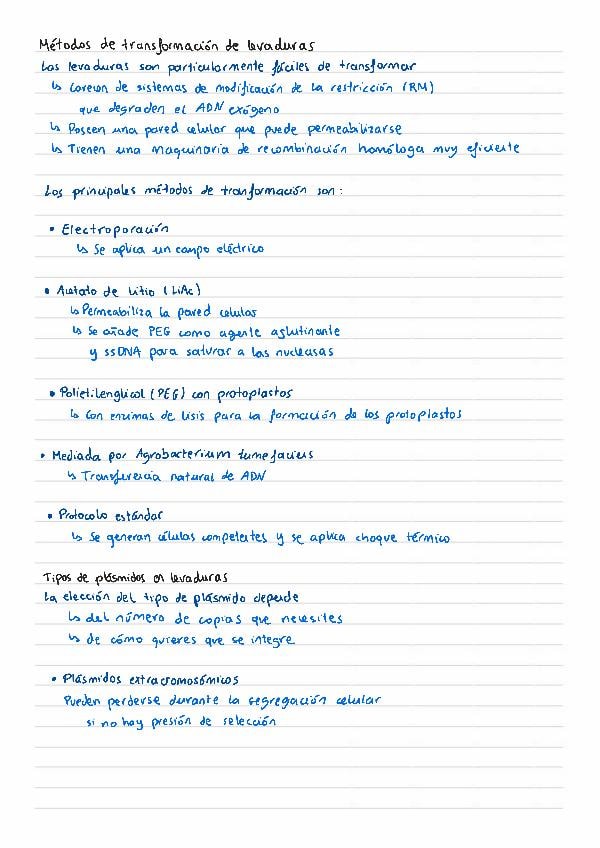 Métodos de transformación de levaduras
Las levaduras son particularmente fáciles de transformar
↳ Carecen de sistemas de modificación de la restricción (RM)
que degraden el ADN exógeno
↳ Poseen una pared celular que puede permeabilizarse
↳ Tienen una maquinaria de recombinación homóloga muy eficiente
Los principales métodos de transformación son:
• Electroporación
↳ Se aplica un campo eléctrico
• Acetato de Litio (LiAc)
↳ Permeabiliza la pared celular
↳ Se añade PEG como agente aglutinante
y ssDNA para saturar a las nucleasas
• Polietilenglicol (PEG) con protoplastos
↳ Con enzimas de lisis para la formación de los protoplastos
• Mediada por Agrobacterium tumefaciens
↳ Transferencia natural de ADN
• Protocolo estándar
↳ Se generan células competentes y se aplica choque térmico
Tipos de plásmidos en levaduras
La elección del tipo de plásmido depende
↳ del número de copias que necesites
↳ de cómo quieres que se integre
• Plásmidos extracromosómicos
Pueden perderse durante la segregación celular
si no hay presión de selección